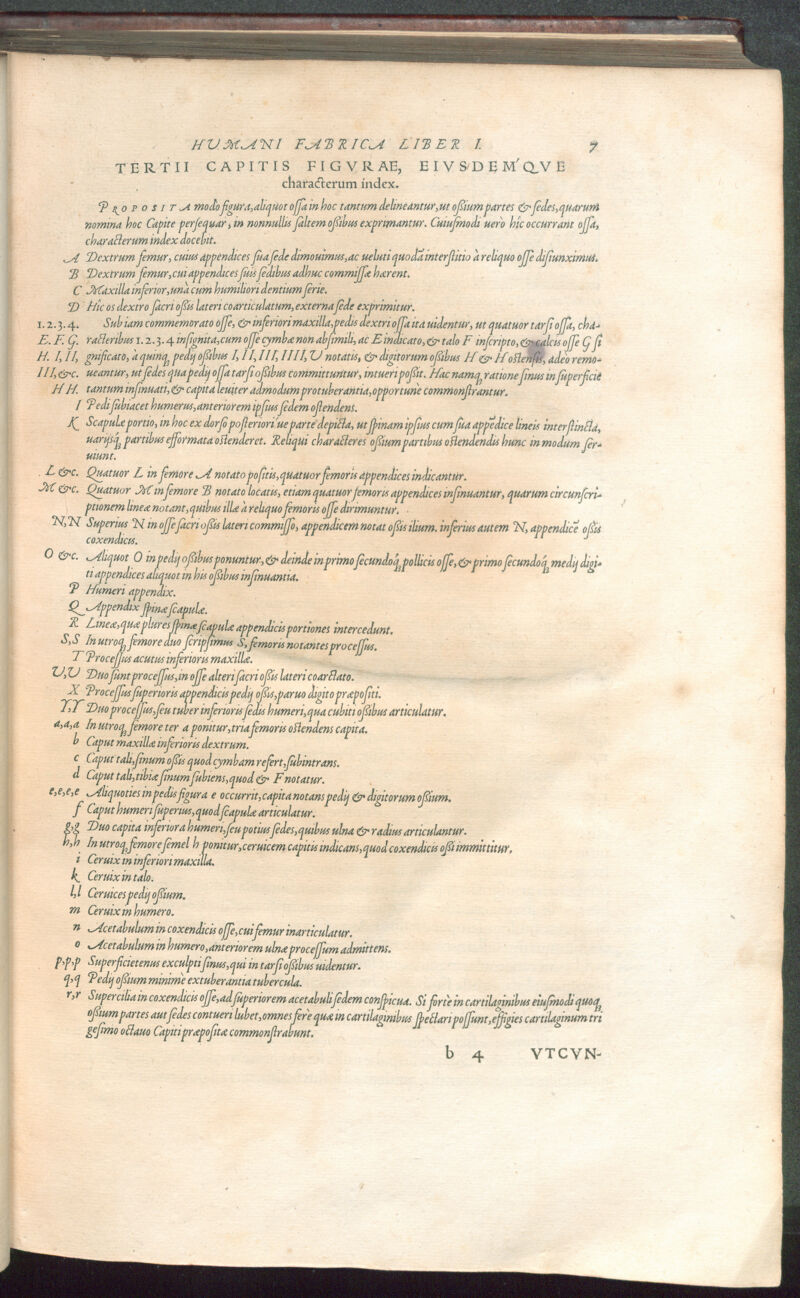 HUMANI FABRICA LIBER I. 7
TERTII CAPITIS FIGVRAE, EIVSDEM'QVE
characterum index.
PROPOSITA modò figura, aliquot ossa in hoc tantum delineantur, ut oßium partes & sedes, quarum
nomina hoc Capite persequar, in nonnullis saltem oßibus exprimantur. Cuiusmodi uerò hîc occurrant ossa,
characterum index docebit.
A Dextrum femur, cuius appendices sua sede dimouimus, ac ueluti quodā interstitio à reliquo osse disiunximus.
B Dextrum femur, cui appendices suis sedibus adhuc commissæ hærent.
C Maxilla inferior, unà cum humiliori dentium serie.
D Hîc os dextro sacri oßis lateri coarticulatum, externa sede exprimitur.
1.2.3.4. Sub iam commemorato osse, & inferiori maxilla, pedis dextri ossa ita uidentur, ut quatuor tarsi ossa, cha-
E. F. G. racteribus 1. 2. 3. 4 insignita, cum osse cymbæ non absimili, ac E indicato, & talo F inscripto, & calcis osse G si
H. I, II, gnificato, à quinq̄ pedij oßibus I, II, III, IIII, V notatis, & digitorum oßibus H & H ostensis, adeò remo-
III,&c. ueantur, ut sedes qua pedij ossa tarsi oßibus committuntur, intueri poßit. Hac namq̄ ratione sinus in superficie
HH. tantum insinuati, & capita leuiter admodum protuberantia, opportunè commonstrantur.
I Pedi subiacet humerus, anteriorem ipsius sedem ostendens.
K Scapulæ portio, in hoc ex dorso posteriori'ue parte depicta, ut spinam ipsius cum sua appēdice lineis interstincta,
uarijsq̄ partibus efformata ostenderet. Reliqui characteres oßium partibus ostendendis hunc in modum ser-
uiunt.
L &c. Quatuor L in femore A notato positis, quatuor femoris appendices indicantur.
M &c. Quatuor M in femore B notato locatis, etiam quatuor femoris appendices insinuantur, quarum circunscri-
ptionem lineæ notant, quibus illæ à reliquo femoris osse dirimuntur.
N,N Superius N in osse sacri oßis lateri commisso, appendicem notat oßis ilium. inferius autem N, appendicē oßis
coxendicis.
O &c. Aliquot O in pedij oßibus ponuntur, & deinde in primo secundoq̄ pollicis osse, & primo secundoq̄ medij digi-
ti appendices aliquot in his oßibus insinuantia.
P Humeri appendix.
Q Appendix spinæ scapulæ.
R Lineæ, quæ plures spinæ scapulæ appendicis portiones intercedunt.
S,S In utroq̄ femore duo scripsimus S, femoris notantes processus.
T Processus acutus inferioris maxillæ.
V,V Duo sunt processus, in osse alteri sacri oßis lateri coarctato.
X Processus superioris appendicis pedij oßis, paruo digito præpositi.
Y,Y Duo processus, seu tuber inferioris sedis humeri, qua cubiti oßibus articulatur.
a,a,a In utroq̄ femore ter a ponitur, tria femoris ostendens capita.
b Caput maxillæ inferioris dextrum.
c Caput tali, sinum oßis quod cymbam refert, subintrans.
d Caput tali, tibiæ sinum subiens, quod & F notatur.
e,e,e,e Aliquoties in pedis figura e occurrit, capita notans pedij & digitorum oßium.
f Caput humeri superius, quod scapulæ articulatur.
g,g Duo capita inferiora humeri, seu potius sedes, quibus ulna & radius articulantur.
h,h In utroq̄ femore semel h ponitur, ceruicem capitis indicans, quod coxendicis oßi immittitur.
i Ceruix in inferiori maxilla.
k Ceruix in talo.
l,l Ceruices pedij oßium.
m Ceruix in humero.
n Acetabulum in coxendicis osse, cui femur inarticulatur.
o Acetabulum in humero, anteriorem ulnæ processum admittens.
p,p,p Superficietenus exculpti sinus, qui in tarsi oßibus uidentur.
q,q Pedij oßium minimè extuberantia tubercula.
r,r Supercilia in coxendicis osse, ad superiorem acetabuli sedem conspicua. Si fortè in cartilaginibus eiusmodi quoq̄
oßium partes aut sedes contueri lubet, omnes ferè quæ in cartilaginibus spectari possunt, effigies cartilaginum tri
gesimo octauo Capiti præposita commonstrabunt.
b 4 VTCVN-